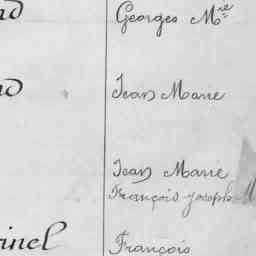 nd Georges Mie
nd Jean Marie
Jean Marie
François Joseph M
rinel François